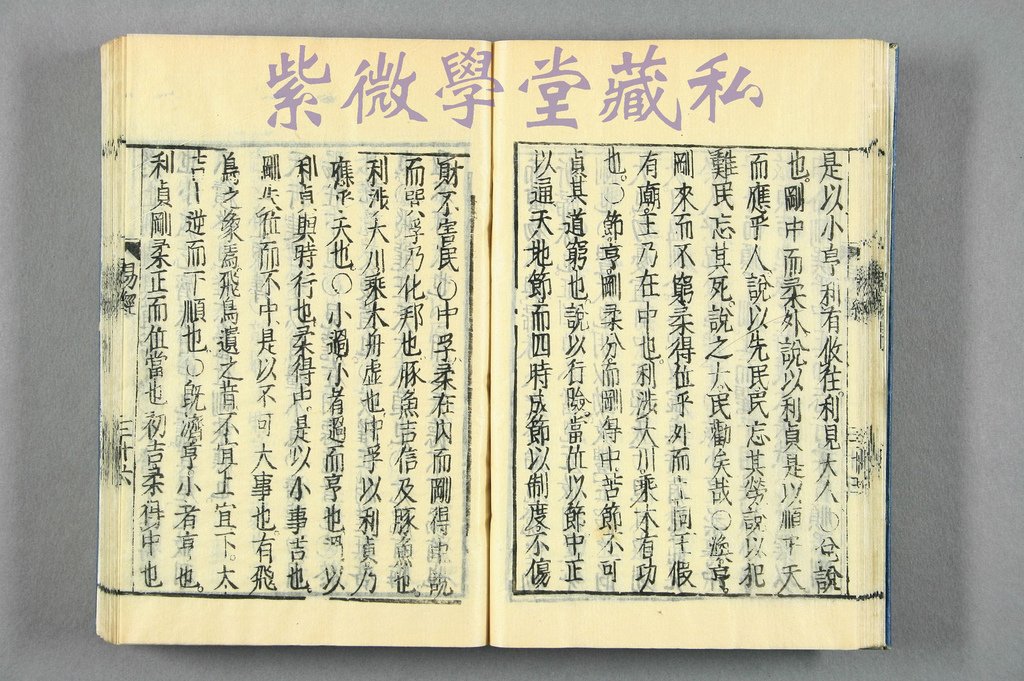 私藏堂學微紫
是以小亨利有攸往利見大人○兌說
也剛中而柔外說以利貞是以順乎天
而應乎人說以先民民忘其勞說以犯
難民忘其死說之大民勸矣哉○渙亨
剛來而不窮柔得位乎外而上同王假
有廟王乃在中也利涉大川乘木有功
也○節亨剛柔分而剛得中苦節不可
貞其道窮也說以行險當位以節中正
以通天地節而四時成節以制度不傷
財不害民○中孚柔在內而剛得中說
而巽孚乃化邦也豚魚吉信及豚魚也
利涉大川乘木舟虛也中孚以利貞乃
應乎天也○小過小者過而亨也過以
利貞與時行也柔得中是以小事吉也
剛失位而不中是以不可大事也有飛
鳥之象焉飛鳥遺之音不宜上宜下大
吉上逆而下順也○旣濟亨小者亨也
利貞剛柔正而位當也初吉柔得中也
易經
三十六